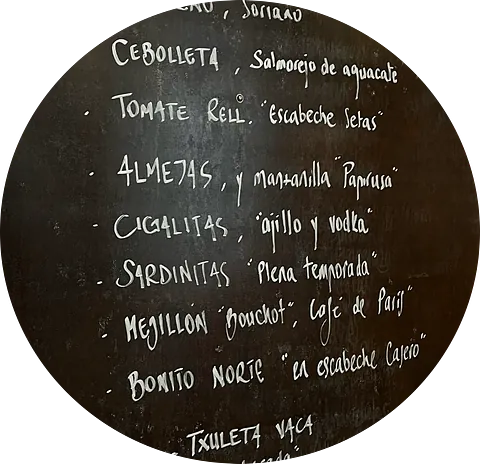 , Soriano
CEBOLLETA , Salmorejo de aguacate
- TOMATE RELL. "Escabeche Setas"
- ALMEJAS, y manzanilla "Papirusa"
- CIGALITAS, "ajillo y vodka"
- SARDINITAS "Plena temporada"
- MEJILLÓN "Bouchot", Café de París"
- BONITO NORTE "en escabeche Casero"
TXULETA VACA